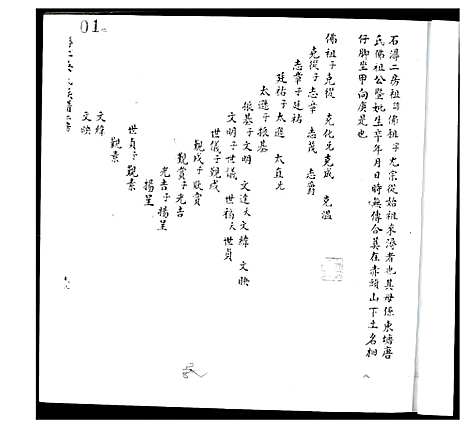 石潯二房祖曰佛祖子尤宗從始祖來潯者也其母係東塘唐
氏佛祖公暨妣生卒年月日時無傳合葬在赤頭山下土名相
仔脚坐甲向庚是也
佛祖子克從 克化 克成 克溫
克從子志章 志茂 志爵
志章子廷祐
廷祐子太進 太貞
太進子振基
振基子文明 文達 文緯 文映
文明子世儀 世禎 世貞
世儀子觀成
觀成子啟賞
觀賞子光吉
光吉子楊呈
楊呈
世貞子觀素
觀素
文緯
文映
01